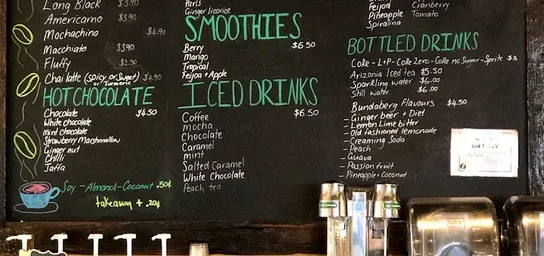 Long Black $3.90
Americano $3.90
Mochachino $4.90
Macchiato $3.90
Fluffy $2.50
Chai latte (Spicy or Sweet) $4.90
or Turmeric
HOT CHOCOLATE
Chocolate $4.50
White chocolate
mint chocolate
Strawberry Marshmallow
Ginger nut
Chilli
Jaffa
Soy - Almond - Coconut .50¢
takeaway + .20¢
Paris
Ginger licorice
SMOOTHIES
Berry $6.50
Mango
Tropical
Feijoa + Apple
ICED DRINKS
Coffee $6.50
mocha
Chocolate
Caramel
mint
Salted Caramel
White Chocolate
Peach tea
Feijoa Cranberry
Pineapple Tomato
Spirulina
BOTTLED DRINKS
Coke - L+P - Coke Zero - Coke no Sugar - Sprite $3
Arizona Iced tea $5.50
Sparkling water $6.00
Still water $6.00
Bundaberg Flavours $4.50
- Ginger beer + Diet
- Lemon Lime bitter
- Old fashioned lemonade
- Creaming Soda
- Peach
- Guava
- Passion fruit
- Pineapple + Coconut